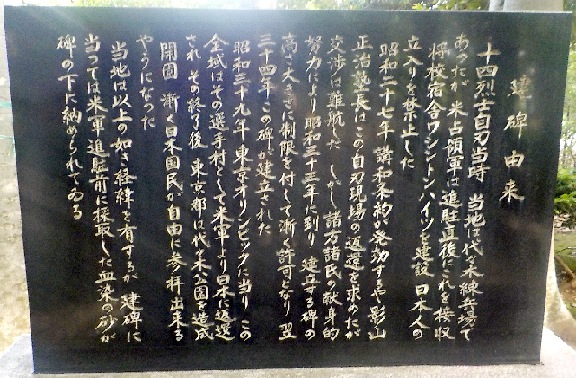 建碑由来
十四烈士自刃当時 当地は代々木練兵場で
あったが 米占領軍は進駐直後これを接収
将校宿舎ワシントンハイツを建設 日本人の
立入りを禁止した
昭和二十七年 講和条約が発効するや影山
正治塾長はこの自刃現場の返還を求めたが
交渉は難航した しかし諸方諸氏の献身的
努力により昭和三十三年に到り 建立する碑の
高さ大きさに制限を付して漸く許可となり 翌
三十四年 この碑が建立された
昭和三十九年 東京オリンピックに当り この
全域はその選手村として米軍より日本に返還
され その終了後 東京都は代々木公園を造成
開園 漸く日本国民が自由に参拝出来る
やうになった
当地は以上の如き経緯を有するが 建碑に
当っては米軍進駐前に採取した血染の砂が
碑の下に納められてゐる